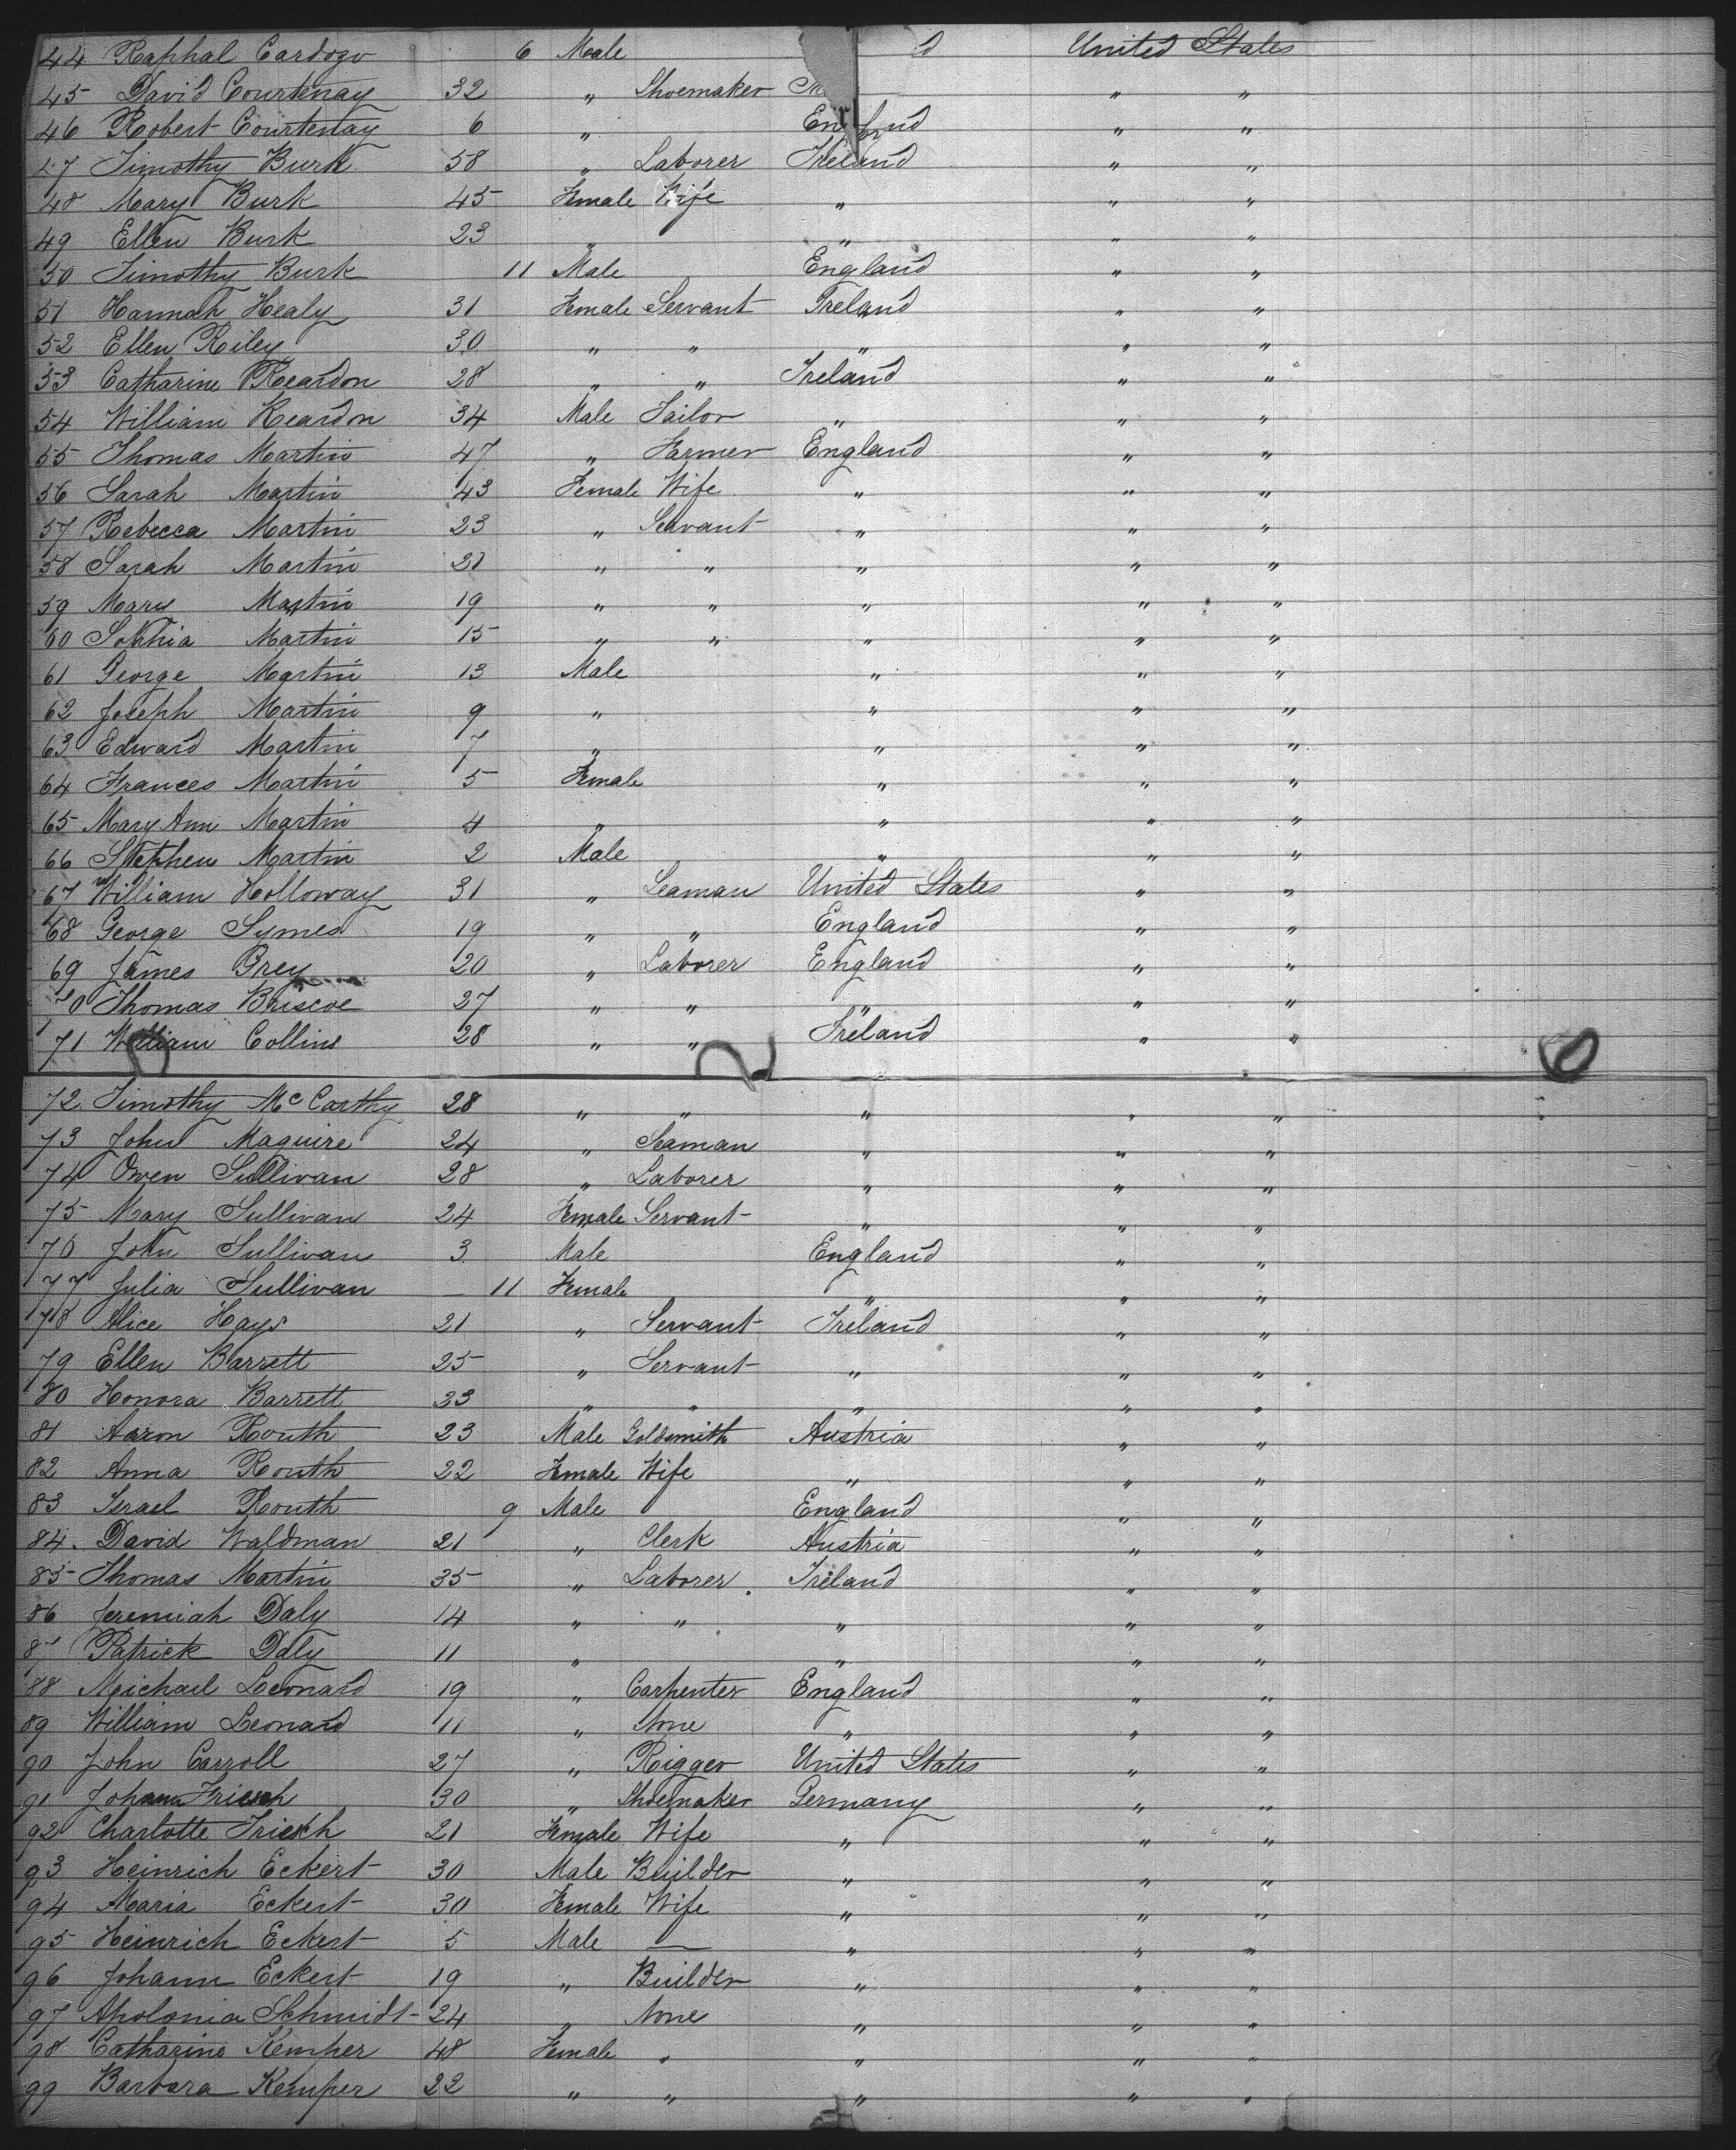 44 Raphal Cardozo 6 Male d United States
45 David Courtenay 32 " Shoemaker " "
46 Robert Courtenay 6 " England " "
47 Timothy Burk 58 " Laborer Ireland " "
48 Mary Burk 45 Female Wife " " "
49 Ellen Burk 23 " " " "
50 Timothy Burk 11 Male England " "
51 Hannah Healy 31 Female Servant Ireland " "
52 Ellen Riley 30 " " " " "
53 Catharine Reardon 28 " " Ireland " "
54 William Reardon 34 Male Tailor " " "
55 Thomas Martin 47 " Farmer England " "
56 Sarah Martin 43 Female Wife " " "
57 Rebecca Martin 23 " Servant " " "
58 Sarah Martin 21 " " " " "
59 Mary Martin 19 " " " " "
60 Sophia Martin 15 " " " " "
61 George Martin 13 Male " " "
62 Joseph Martin 9 " " " "
63 Edward Martin 7 " " " "
64 Frances Martin 5 Female " " "
65 Mary Ann Martin 4 " " " "
66 Stephen Martin 2 Male " " "
67 William Holloway 31 " Seaman United States " "
68 George Symes 19 " " England " "
69 James Grey 20 " Laborer England " "
70 Thomas Briscoe 27 " " " " "
71 William Collins 28 " " Ireland " "
72 Timothy McCarthy 28 " " " " "
73 John Maguire 24 " Seaman " " "
74 Owen Sullivan 28 " Laborer " " "
75 Mary Sullivan 24 Female Servant " " "
76 John Sullivan 3 Male England " "
77 Julia Sullivan — 11 Female " " "
78 Alice Hays 21 " Servant Ireland " "
79 Ellen Barrett 25 " Servant " " "
80 Honora Barrett 23 " " " " "
81 Aaron Routh 23 Male Goldsmith Austria " "
82 Anna Routh 22 Female Wife " " "
83 Israel Routh 9 Male England " "
84. David Waldman 21 " Clerk Austria " "
85 Thomas Martin 35 " Laborer Ireland " "
86 Jeremiah Daly 14 " " " " "
87 Patrick Daly 11 " " " "
88 Meichael Leonard 19 " Carpenter England " "
89 William Leonard 11 " None " " "
90 John Carroll 27 " Rigger United States " "
91 Johann Friesch 30 " Shoemaker Germany " "
92 Charlotte Friesch 21 Female Wife " " "
93 Heinrich Eckert 30 Male Builder " " "
94 Maria Eckert 30 Female Wife " " "
95 Heinrich Eckert 5 Male — " " "
96 Johann Eckert 19 " Builder " " "
97 Apolonia Schmidt 24 " None " " "
98 Catharine Kemper 48 Female " " " "
99 Barbara Kemper 22 " " " " "